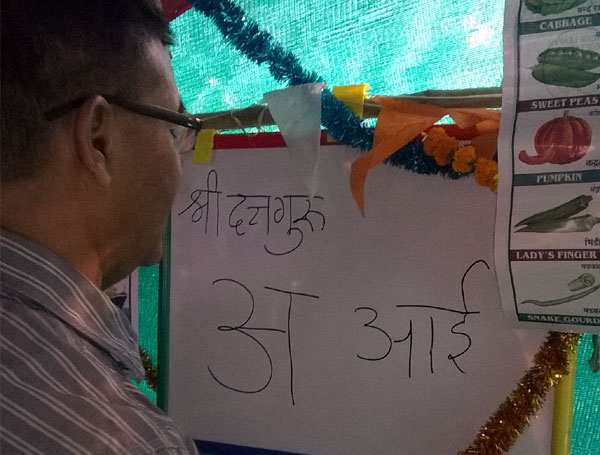 श्री दत्तगुरू
अ आई
CABBAGE
SWEET PEAS
PUMPKIN
LADY'S FINGER
SNAKE GOURD